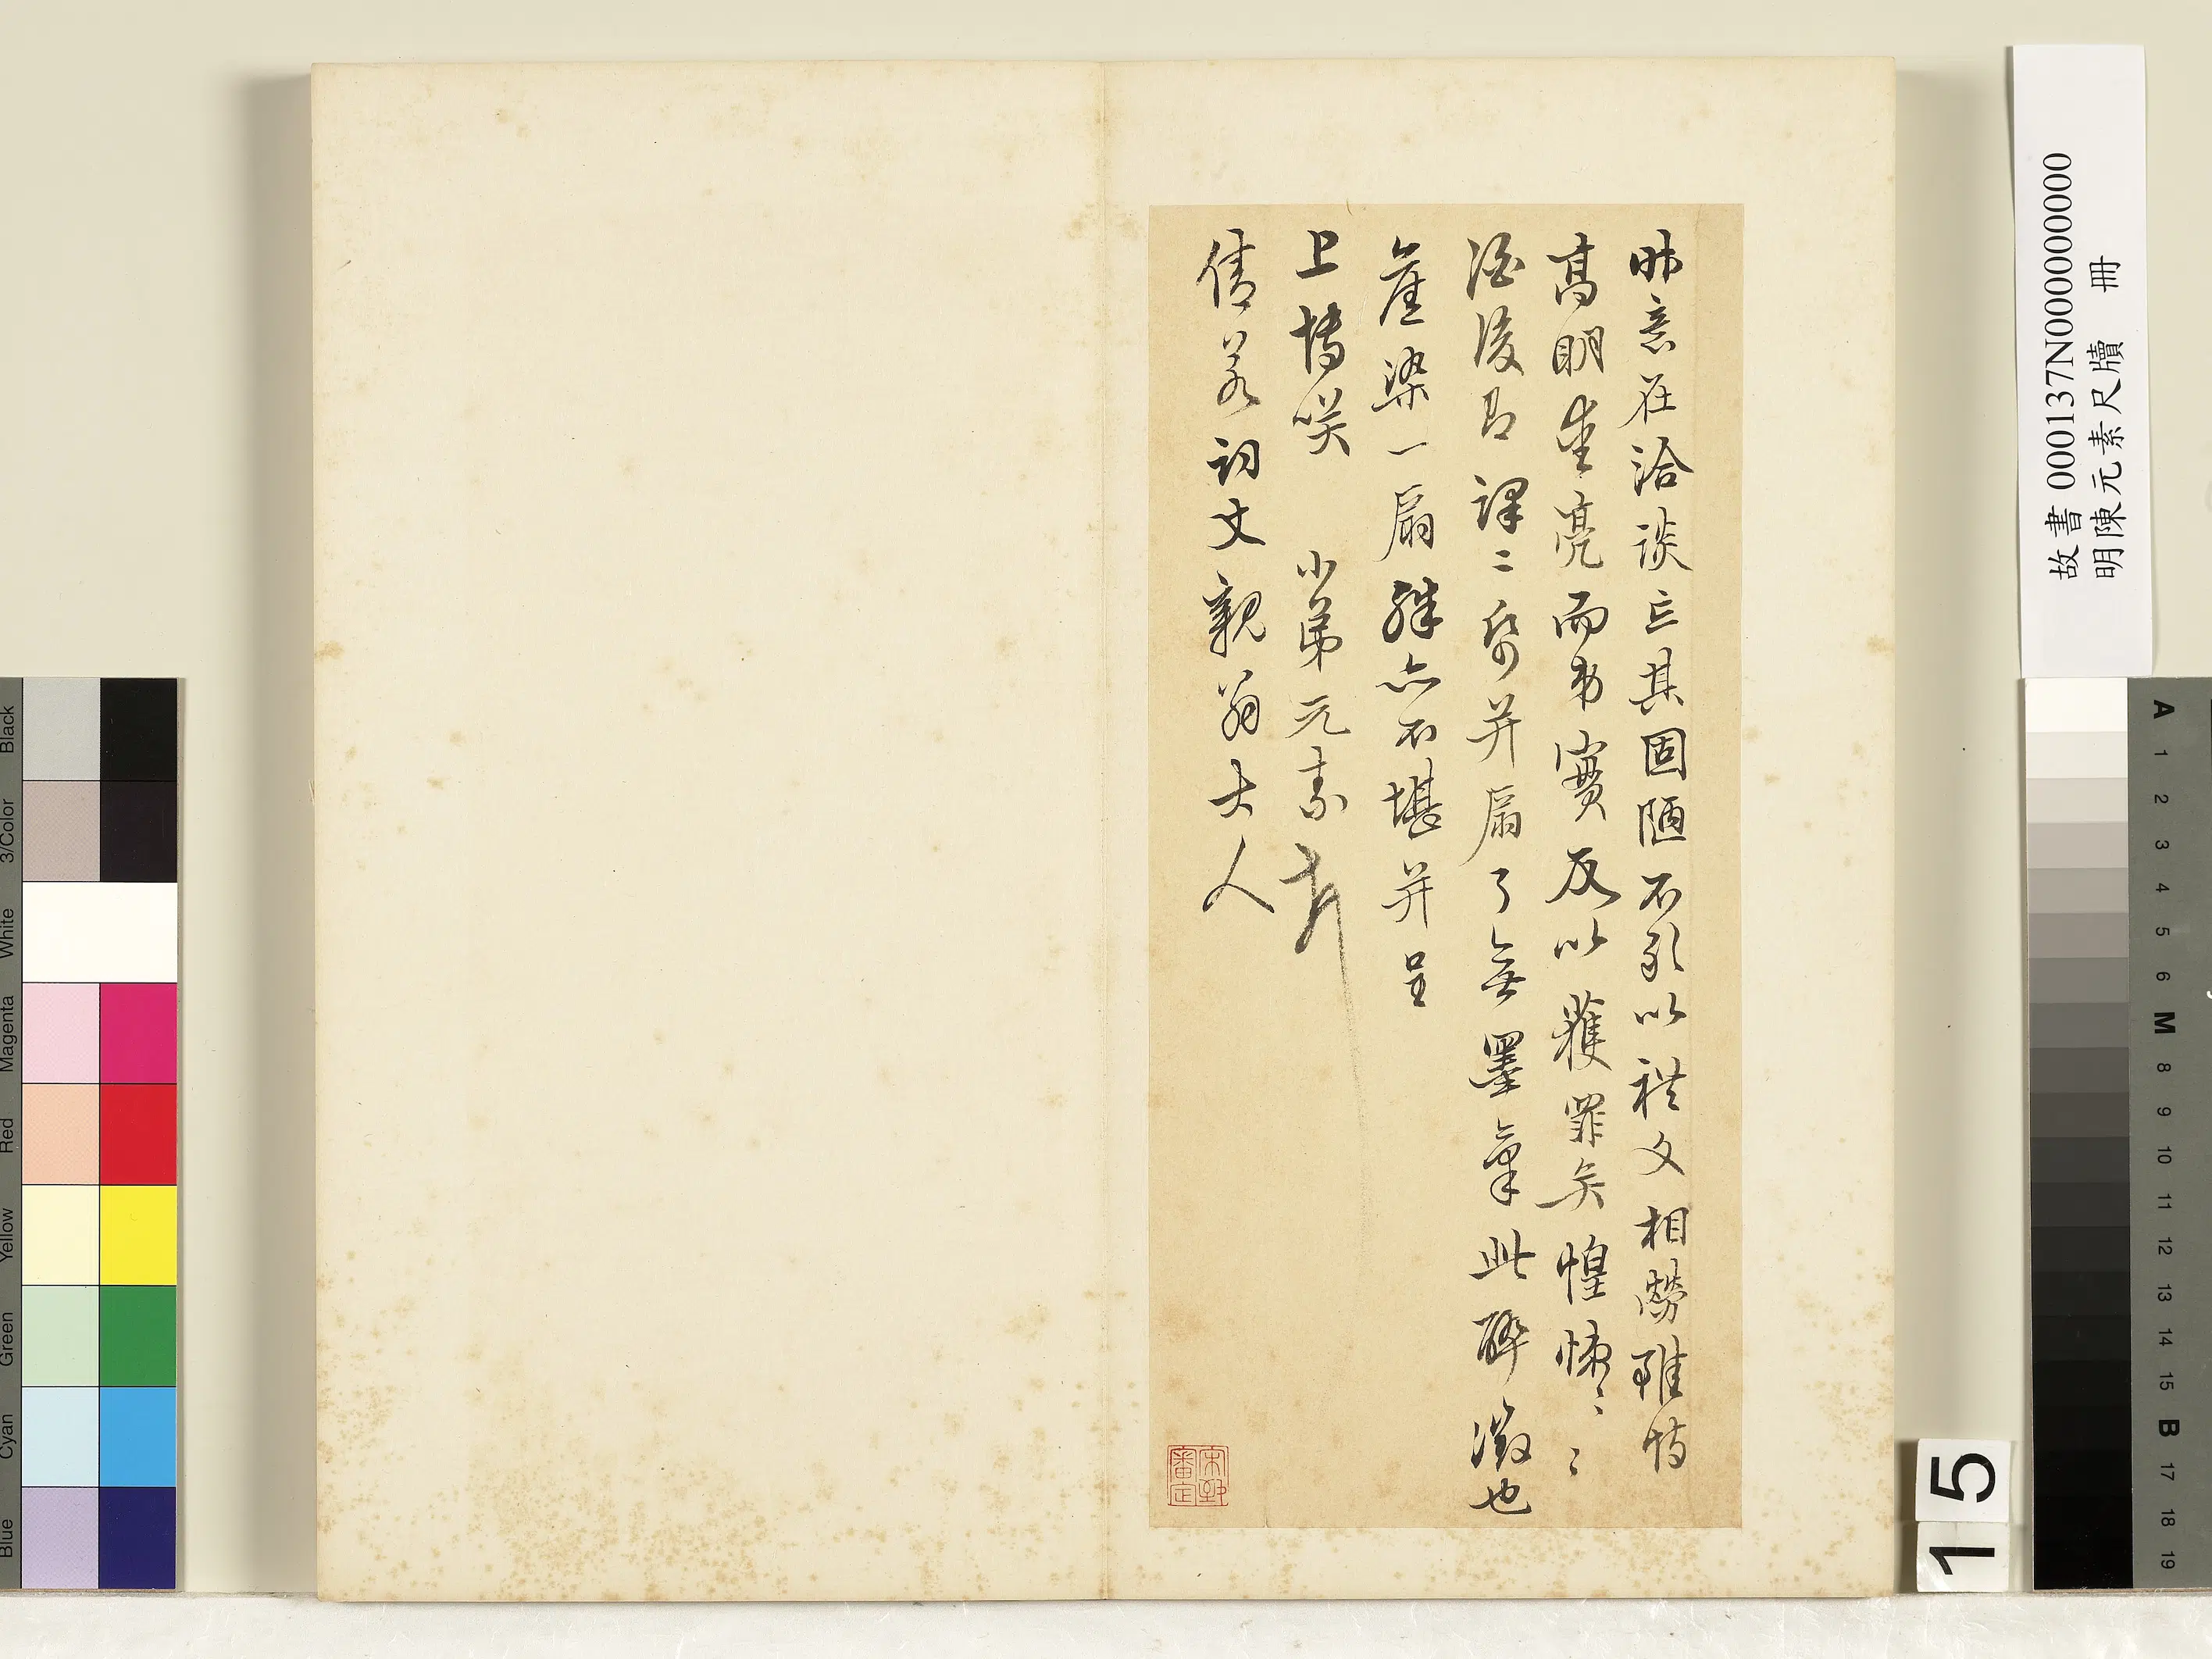 昨意在洽談忘其固陋不敢以禮文相勞雖恃
高明坐亮而於實反以獲罪矣惶悚〻〻
酒後即譯二𢁉并扇了無墨氣此醉徵也
崖染一扇殊亦不堪并呈
上博笑 小弟元素
倩若詞丈親翁大人
宋犖審定
故書 000137N000000000
明陳元素尺牘 冊
15
Black
3/Color
White
Magenta
Red
Yellow
Green
Cyan
Blue
A
1
2
3
4
5
6
M
8
9
10
11
12
13
14
15
B
17
18
19